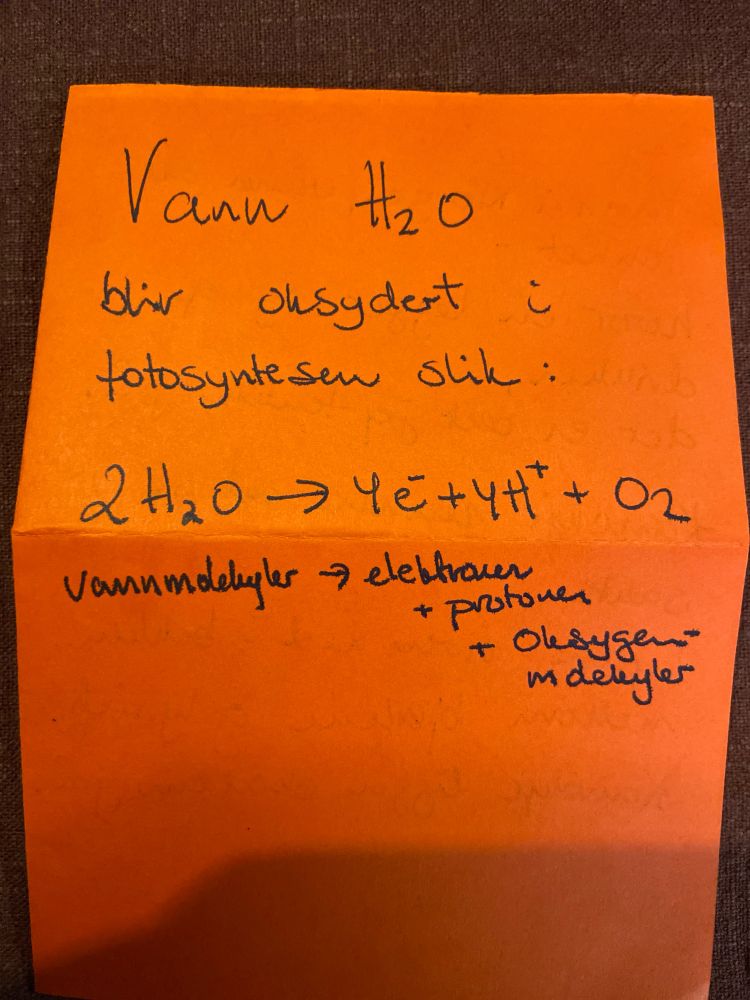 Vann H₂O
blir oksydert i
fotosyntesen slik:
2H₂O → 4e⁻ + 4H⁺ + O₂
vannmolekyler → elektroner
+ protoner
+ Oksygen-
molekyler